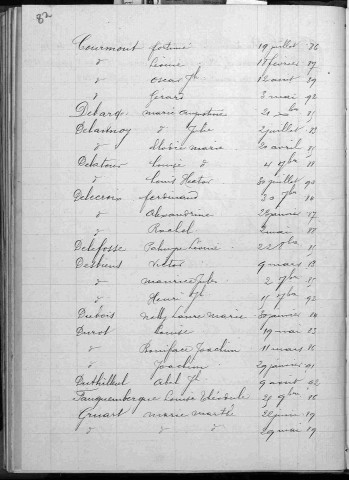 82
Courmont fortuné 19 juillet 86
d Léonie 18 février 87
d Oscar Jh 12 août 89
d Gérard 3 mai 92
Debarge Marie Augustine 20 Xbre 81
Debarnoy d Julie 2 juillet 83
d Elodie Marie 20 avril 81
Delatour Louise d 4 7bre 88
d Louis Hector 30 juillet 90
Delecroix ferdinand 30 7bre 86
d Alexandrine 28 janvier 87
d Rachel 2 mai 88
Delefosse Léonie 22 Xbre
Desbiens Victor 9 mars 83
d Maurice Jules 2 7bre
d Henri Jh 15 9bre 92
Dubois Nelly Laure Marie 30 janvier 84
Durot Louise 19 mai 83
d Boniface Joachim 11 mars 86
d Joachim 29 janvier 81
Duthilleul Abel Jh 9 août 82
Fauquembergue Louise 29 9bre 86
Gruart Marie Marthe 22 juin 89
d d d 29 mai 89